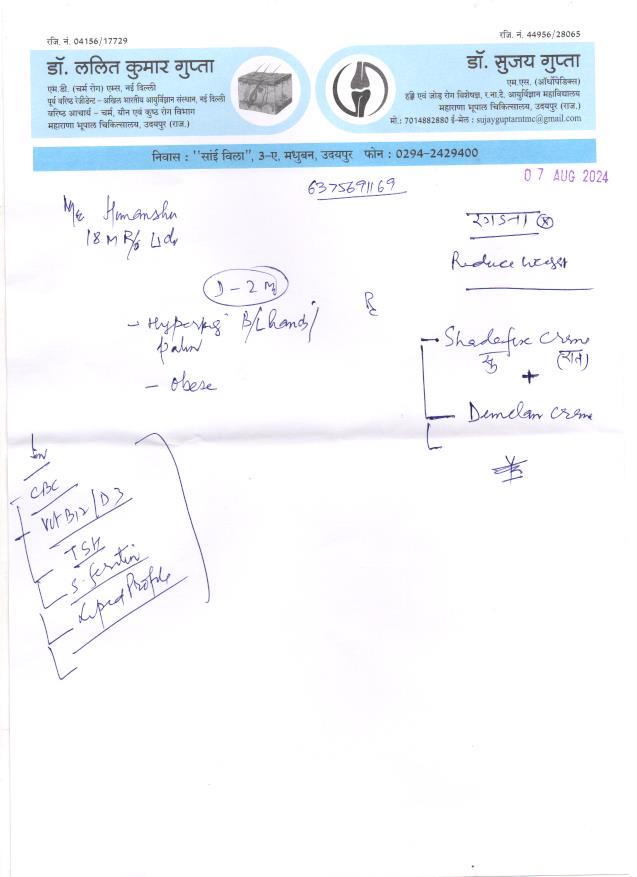 रजि. नं. 04156/17729
डॉ. ललित कुमार गुप्ता
एम.डी. (चर्म रोग) एम्स, नई दिल्ली
पूर्व वरिष्ठ रेजीडेन्ट – अखिल भारतीय आयुर्विज्ञान संस्थान, नई दिल्ली
वरिष्ठ आचार्य – चर्म, यौन एवं कुष्ठ रोग विभाग
महाराणा भूपाल चिकित्सालय, उदयपुर (राज.)
रजि. नं. 44956/28065
डॉ. सुजय गुप्ता
एम.एस. (ऑर्थोपेडिक्स)
हड्डी एवं जोड़ रोग विशेषज्ञ, र.ना.टे. आयुर्विज्ञान महाविद्यालय
महाराणा भूपाल चिकित्सालय, उदयपुर (राज.)
मो.: 7014882880 ई-मेल : sujayguptarntmc@gmail.com
निवास : "सांई विला", 3-ए, मधुबन, उदयपुर फोन : 0294-2429400
07 AUG 2024
6375691169
Mr Himanshu
18 M
रगडना
Reduce weight
D - 2
- Hyperpig B/L hands/
palm
- obese
Rx
Shadefix creme
(रात)
+
Demelan creme
CBC
Vit B12/D3
TSH
S. ferritin
Lipid Profile